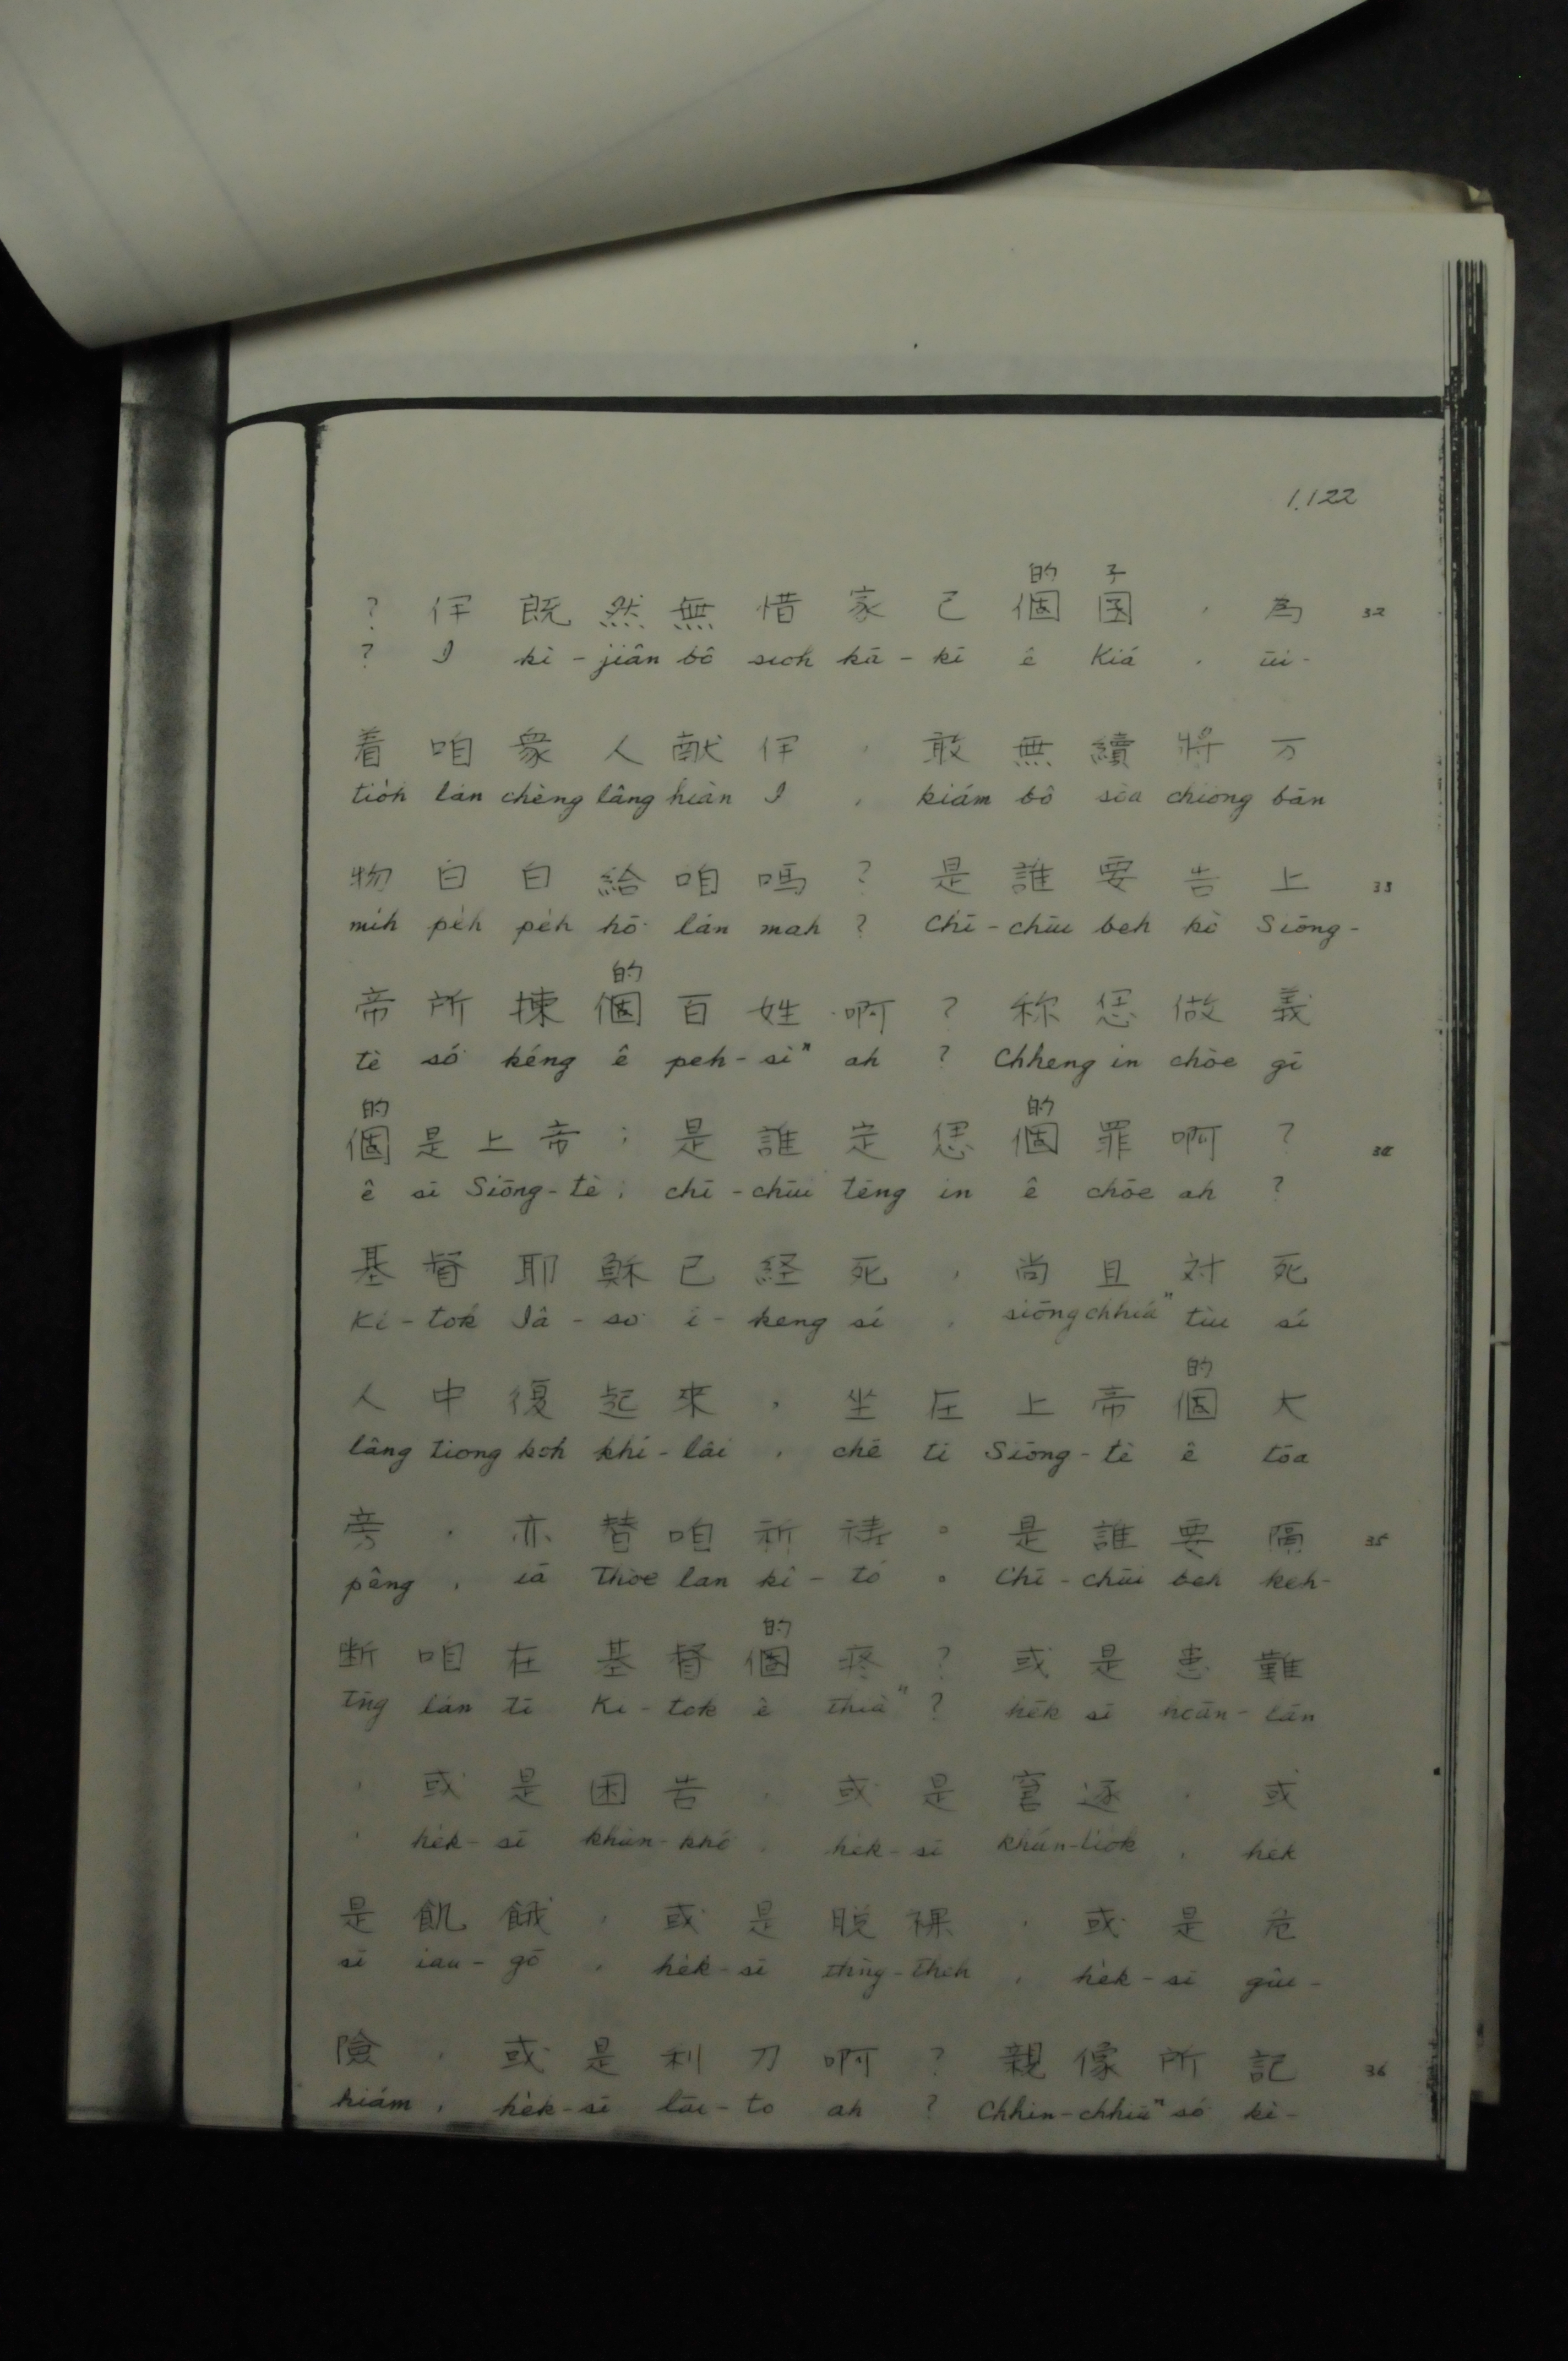 1.122
的 子
? 伻 既 然 無 惜 家 己 個 囯 , 為 32
? I kì-jiân bô sioh kā-kī ê Kiá , ūi-
着 咱 衆 人 献 伻 , 敢 無 續 將 万
tio̍h lán chèng lâng hiàn I , kiám bô sòa chiong bān
物 白 白 給 咱 嗎 ? 是 誰 要 告 上 33
mi̍h pe̍h pe̍h hō͘ lán mah ? Chī-chūi beh kò Siōng-
的
帝 所 揀 個 百 姓 啊 ? 称 恁 做 義
tè só͘ kéng ê peh-sìⁿ ah ? Chheng in chòe gī
的 的
個 是 上 帝 ; 是 誰 定 恁 個 罪 啊 ? 34
ê sī Siōng-tè ; chī-chūi tēng in ê chōe ah ?
基 督 耶 穌 已 経 死 , 尚 且 対 死
Ki-tok Iâ-so͘ í-keng sí , siōng chhiáⁿ tùi sí
的
人 中 復 起 來 , 坐 在 上 帝 個 大
lâng tiong koh khí-lâi , chē tī Siōng-tè ê tōa
旁 , 亦 替 咱 祈 禱 。 是 誰 要 隔 35
pêng , iā thòe lan kî-tó 。 Chī-chūi beh keh-
的
断 咱 在 基 督 個 疼 ? 或 是 患 難
tn̄g lán tī Ki-tok ê thiàⁿ ? he̍k sī hoān-lān
, 或 是 困 苦 , 或 是 窘 逐 , 或
, he̍k-sī khùn-khó͘ , he̍k-sī khún-tio̍k , he̍k
是 飢 餓 , 或 是 脱 裸 , 或 是 危
sī iau-gō , he̍k-sī thǹg-theh , he̍k-sī gûi-
險 , 或 是 利 刀 啊 ? 親 像 所 記 36
hiám , he̍k-sī lāi-to ah ? Chhin-chhiūⁿ só͘ kì-